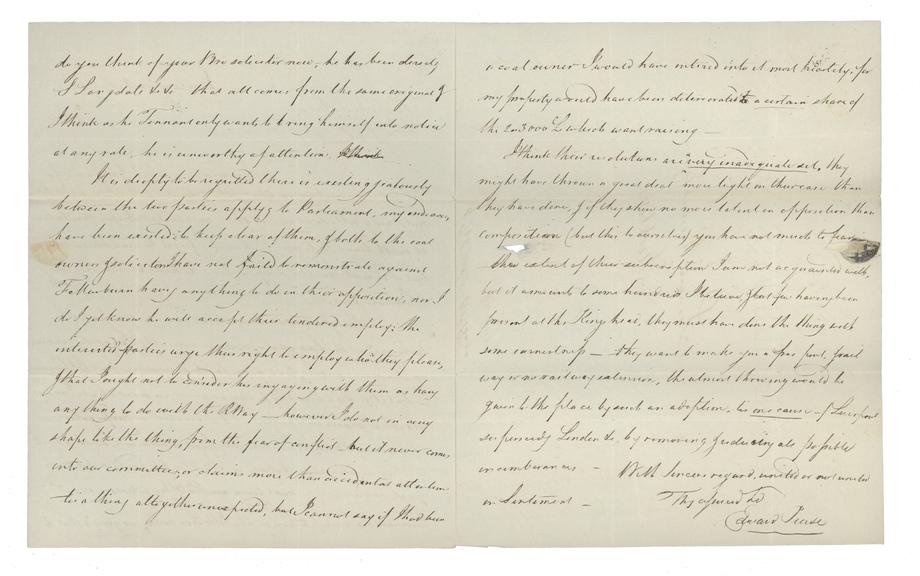 do you think of your Bro solicitor now, he has been directly
that all comes from the same original &
I think as he Tennant only wants to bring himself into notice
at any rate, he is unworthy of attention.
It is deeply to be regretted there is existing jealously
between the two parties applyg to Parliament, my endeavors
have been exerted to keep clear of them, & both to the coal
owners & solicitor I have not faild to remonstrate against
having any thing to do in their opposition, nor I
do I yet know he will accept their tendered employ; the
interested parties urge their right to employ who they please,
& that I ought not to consider his engaging with them as havg
any thing to do with the RWay — however I do not in any
shape like the thing, from the fear of conflict but it never comes
into our committee, or claims more than accidental attention
tis a thing altogether unexpected, but I cannot say if I had been
a coal owner I would have entered into it most heartily, for
my property would have been deteriorated to a certain share of
the 2 or 3000 £ which want raising —
I think their resolutions are very inadequate set, they
might have thrown a great deal more light on their case than
they have done, & if they shew no more talent in opposition than
composition (but this to ourselves) you have not much to fear —
the extent of their subscription I am not acquainted with,
but it amounts to some hundreds I believe, & that for having been
present at the Kings head, they must have done the thing with
some earnestness — they want to make you a free port, &
way or no railway extension, the utmost thriving would be
given to the place by such an adoption, tis one cause of Liverpool
supersedg London &c, by removing gradually all possible
incumbrances — With sincere regard, united or not united
in Sentiment — Thy assured Fd
Edward Pease